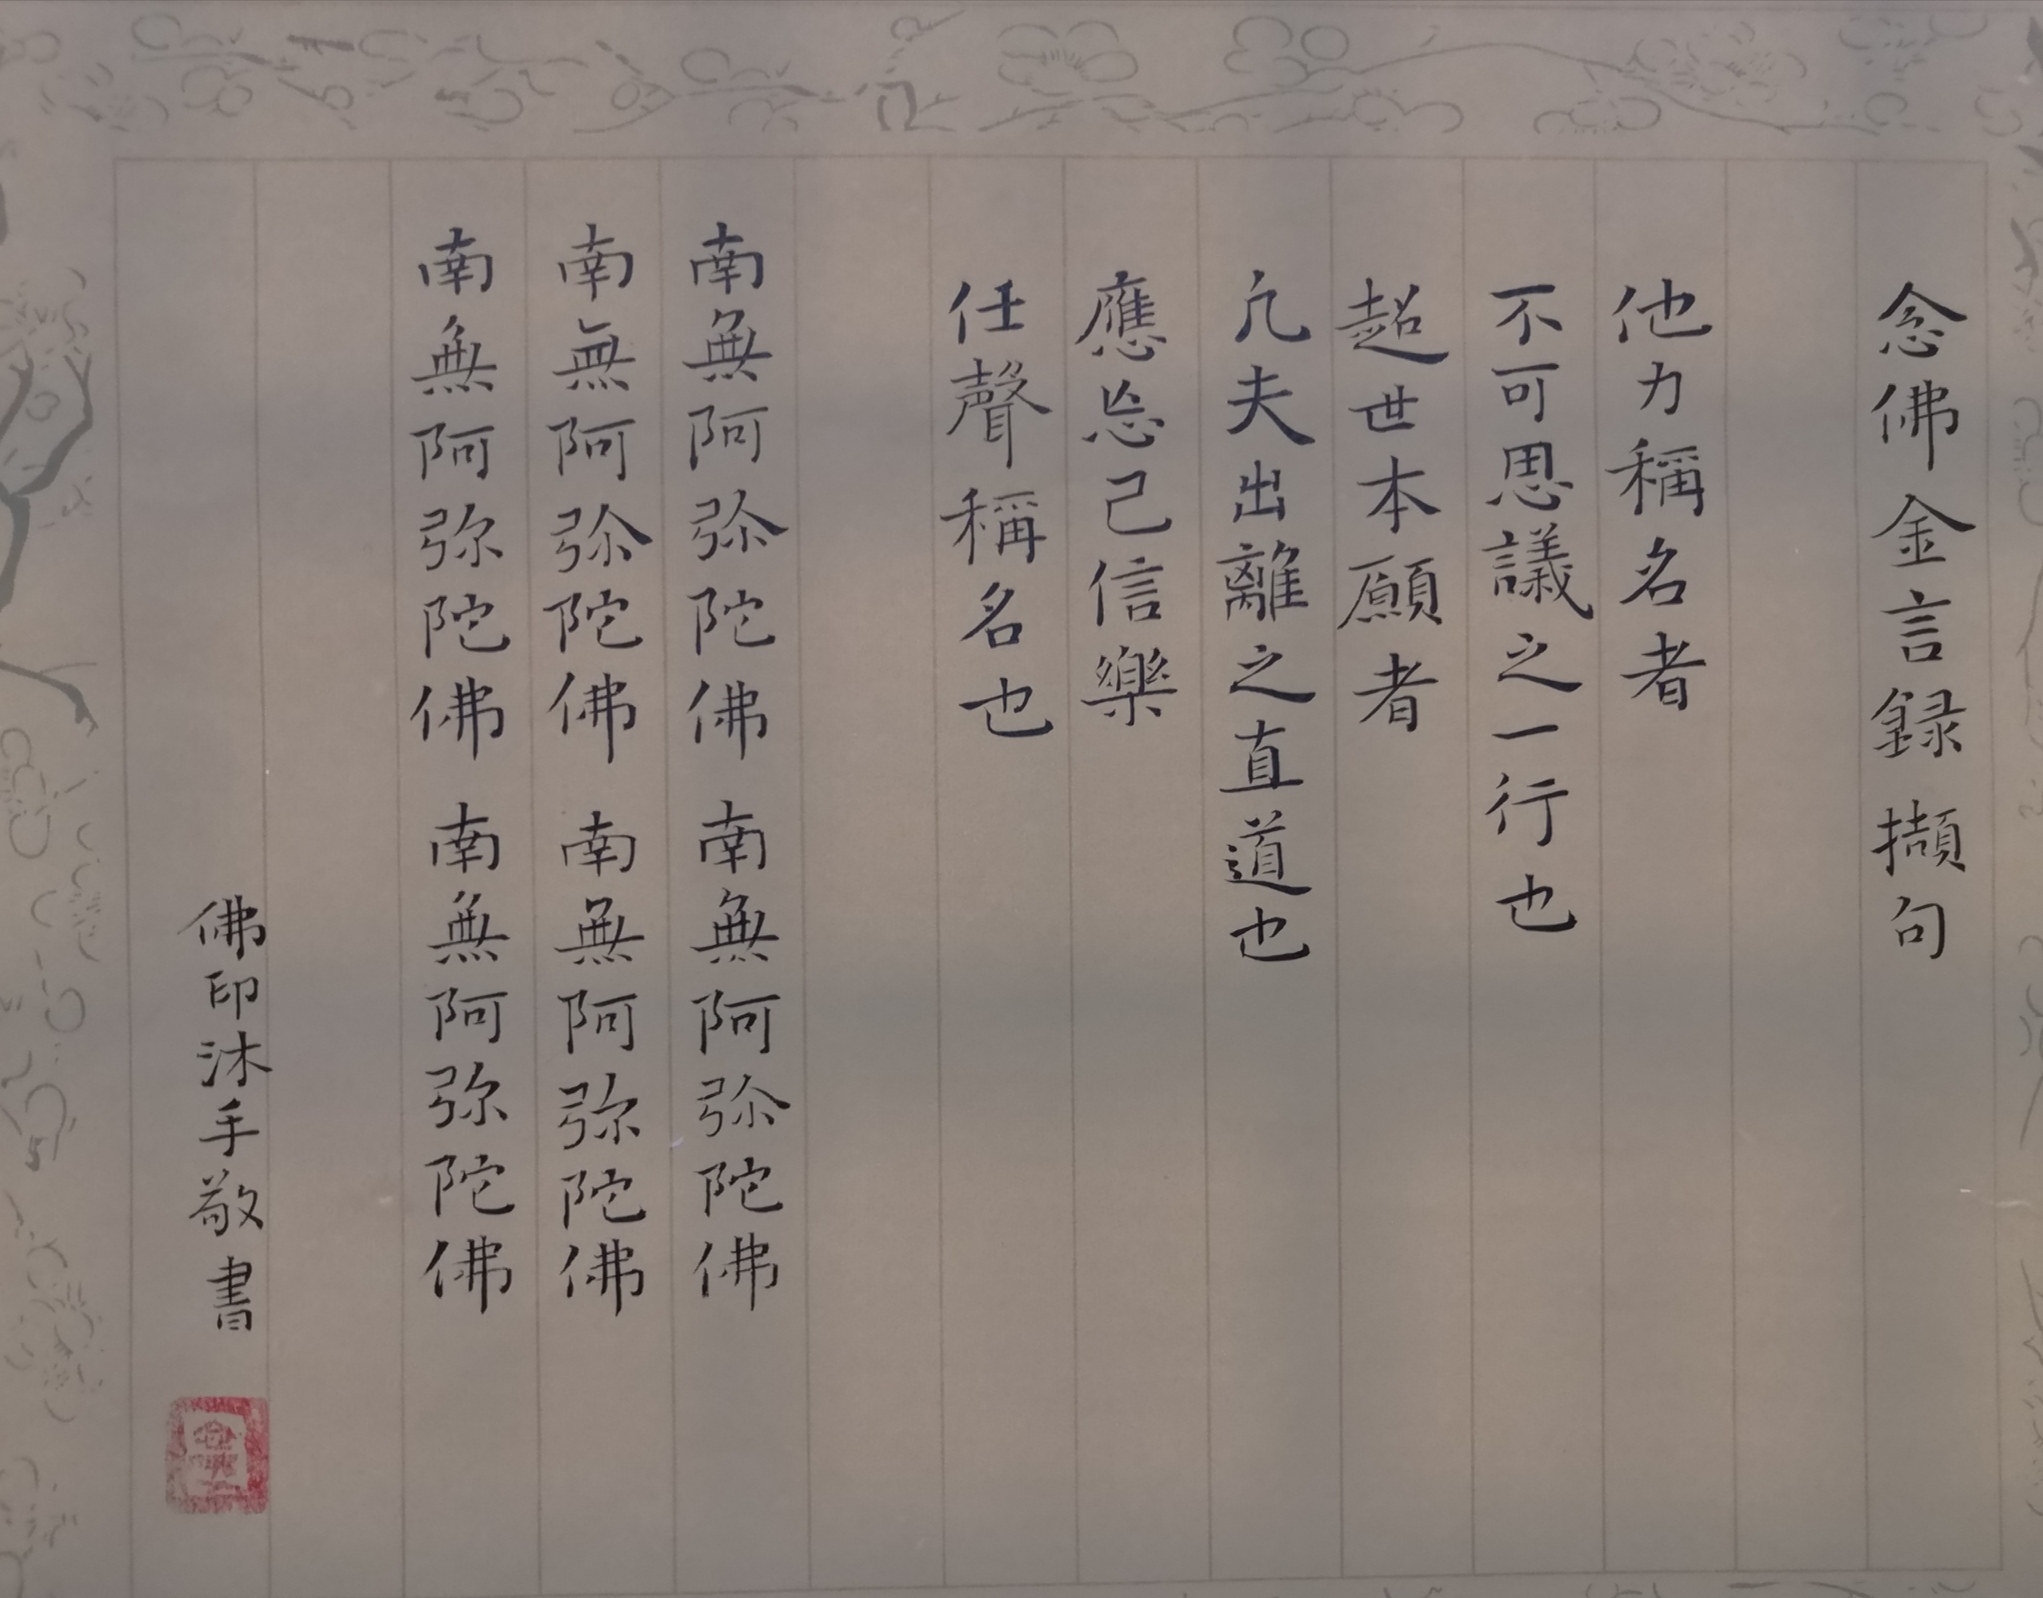 念佛金言録擷句
他力稱名者
不可思議之一行也
超世本願者
凢夫出離之直道也
應忘己信樂
任聲稱名也
南無阿弥陀佛 南無阿弥陀佛
南無阿弥陀佛 南無阿弥陀佛
南無阿弥陀佛 南無阿弥陀佛
佛印沐手敬書